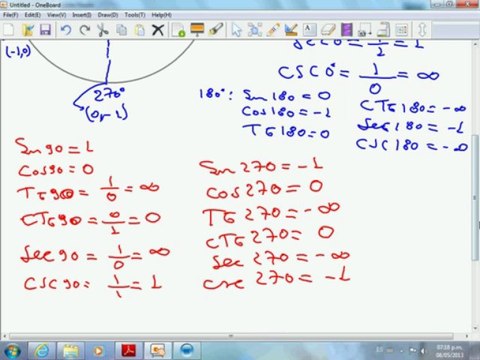 Untitled - OneBoard
File(F) Edit(E) View(V) Insert(I) Draw(D) Tools(T) Help(H)
(-1,0)
270°
(0,-1)
Sec 0° = 1/1 = 1
CSC 0° = 1/0 = ∞
180°: Sen 180 = 0
Cos 180 = -1
TG 180 = 0
CTG 180 = -∞
Sec 180 = -1
CSC 180 = -∞
Sen 90 = 1
Cos 90 = 0
TG 90 = 1/0 = ∞
CTG 90 = 0/1 = 0
Sec 90 = 1/0 = ∞
CSC 90 = 1/1 = 1
Sen 270 = -1
Cos 270 = 0
TG 270 = -∞
CTG 270 = 0
Sec 270 = -∞
CSC 270 = -1
ES
07:18 p.m.
08/05/2013